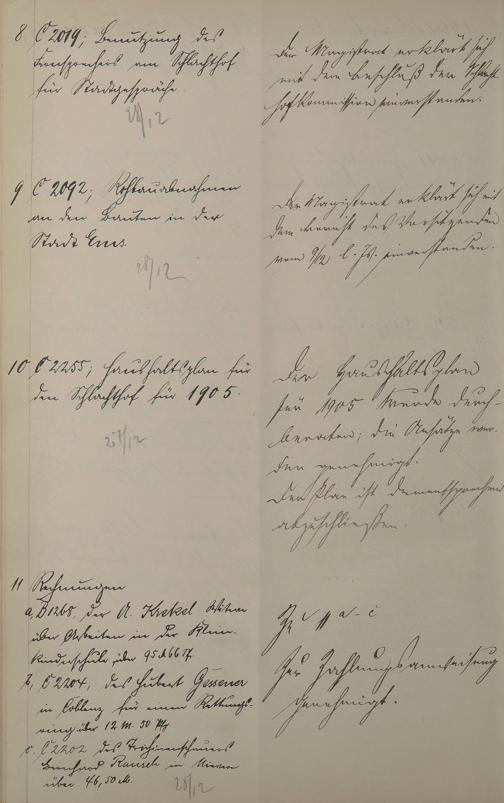 8 C 2019; Benutzung des
Fernsprechers am Schlachthof
für Stadtgespräche.
28/12
Der Magistrat erklärt sich
mit dem Beschluß der Schlacht-
hofkommission einverstanden.
9 C 2092; Rohbauabnahmen
an den Bauten in der
Stadt Ems.
28/12
Der Magistrat erklärt sich mit
dem Bericht des Vorsitzenden
vom 9/12 l. Js. einverstanden.
10 C 2255; Haushaltsplan für
den Schlachthof für 1905.
27/12
Der Haushaltsplan
für 1905 wurde durch-
beraten; die Ansätze wer-
den genehmigt.
Der Plan ist dementsprechend
abzuschließen.
11 Rechnungen
a, D 1268, der A. Krekel Witwe
über Arbeiten in der Klein-
kinderschule über 95 M 66 Pf
b, C 2204, des Hubert Gessener
in Coblenz für einen Rettungs-
ring über 12 M. 50 Pfg
c. C 2202 des Trichinenschauers
Bernhard Rausch in
über 46,50 M.
28/12
Zu 11 a - c
Zur Zahlungsanweisung
genehmigt.